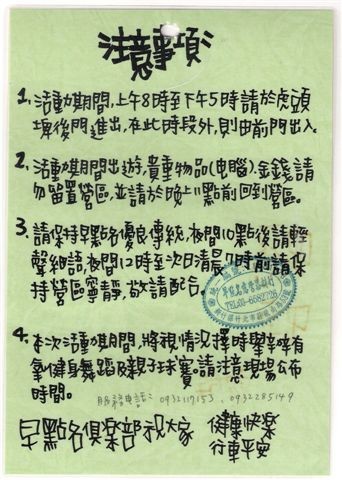 注意事項:
1. 活動期間,上午8時至下午5時請於虎頭
埤後門進出,在此時段外,則由前門出入.
2. 活動期間出遊,貴重物品(电腦).金錢請
勿留置營區,並請於晚上11點前回到營區.
3. 請保持早點名優良傳統,夜間10點後請輕
聲細語,夜間12時至次日清晨7時前請保
持營區寧靜,敬請配合.
TEL:03-6682728
4. 本次活動期間,將視情況擇時舉辦有
氧健身舞蹈及親子球賽.請注意現場公布
時間.
服務電話: 0932117153 . 0932285149
早點名俱樂部祝大家 健康快樂
行車平安